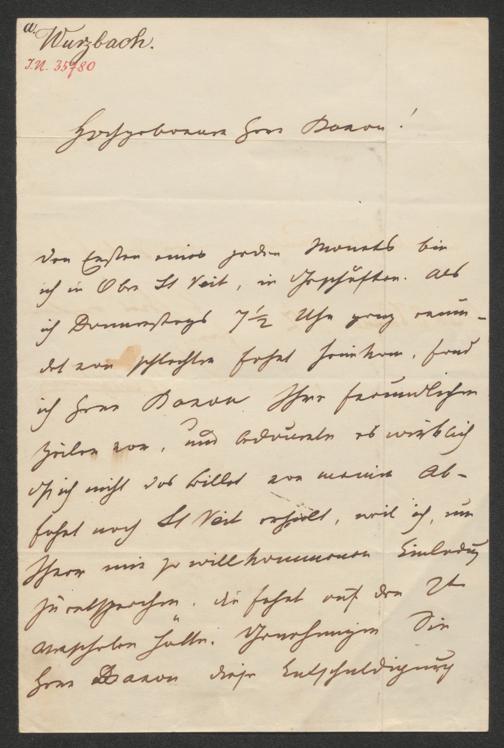 a Wurzbach.
I.N. 35780
Hochgeborener Herr Baron!
Den Ersten eines jeden Monats bin
ich in Ober St Veit, in Geschäften. Als
ich Donnerstags 7 1/2 Uhr ganz
von schlechter Fahrt heimkam, fand
ich Herr Baron Ihre freundlichen
Zeilen vor, und bedauerte es wirklich
daß ich nicht das Billet vor meiner Ab-
fahrt nach St Veit erhielt, weil ich, um
Ihrer mir so willkommenen Einladung
zu entsprechen, die Fahrt auf den 2ten
verschoben hätte. Genehmigen Sie
Herr Baron diese Entschuldigung